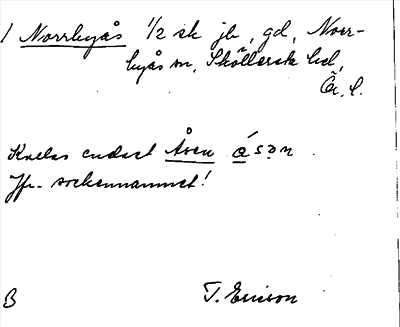 1 Norrbyås 1/2 sk jb, gd, Norr-
byås sn, Sköllersta hd,
Ör. l.
Kallas endast Åsen åsən.
Jfr sockennamnet!
B
T. Ericson